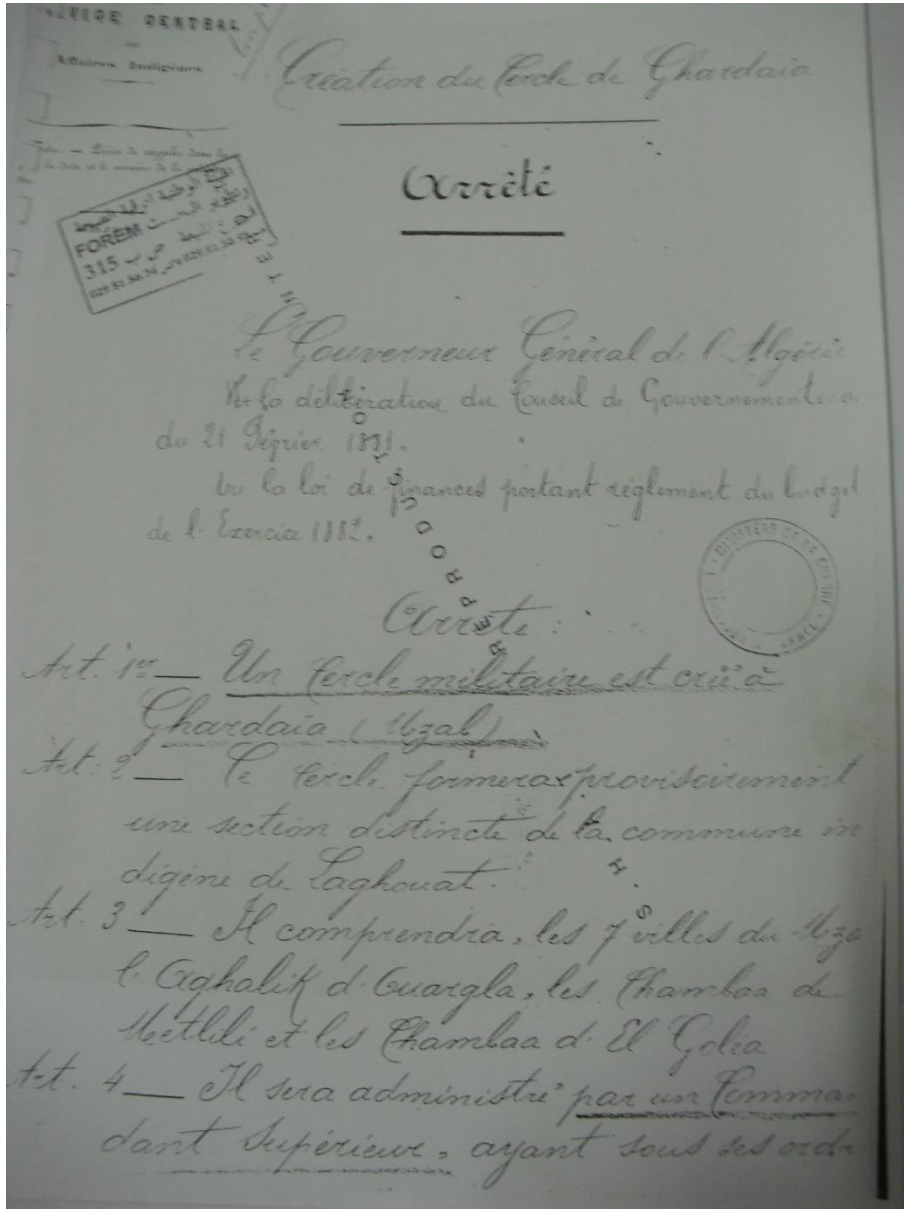 SERVICE CENTRAL
des
Affaires Indigènes
Création du Cercle de Ghardaïa
Arrêté
FOREM
315
Le Gouverneur Général de l'Algérie
Vu la délibération du Conseil de Gouvernement
du 21 Février 1881.
Vu la loi de finances portant règlement du budget
de l'Exercice 1882.
Arrête :
Art. 1er — Un Cercle militaire est créé à
Ghardaïa (Mzab)
Art. 2 — Le Cercle formera provisoirement
une section distincte de la commune in
digène de Laghouat.
Art. 3 — Il comprendra, les 7 villes du Mza
l'Aghalik d'Ouargla, les Chambaa de
Metlili et les Chambaa d'El Goléa
Art. 4 — Il sera administré par un Comman
dant Supérieur, ayant sous ses ordr